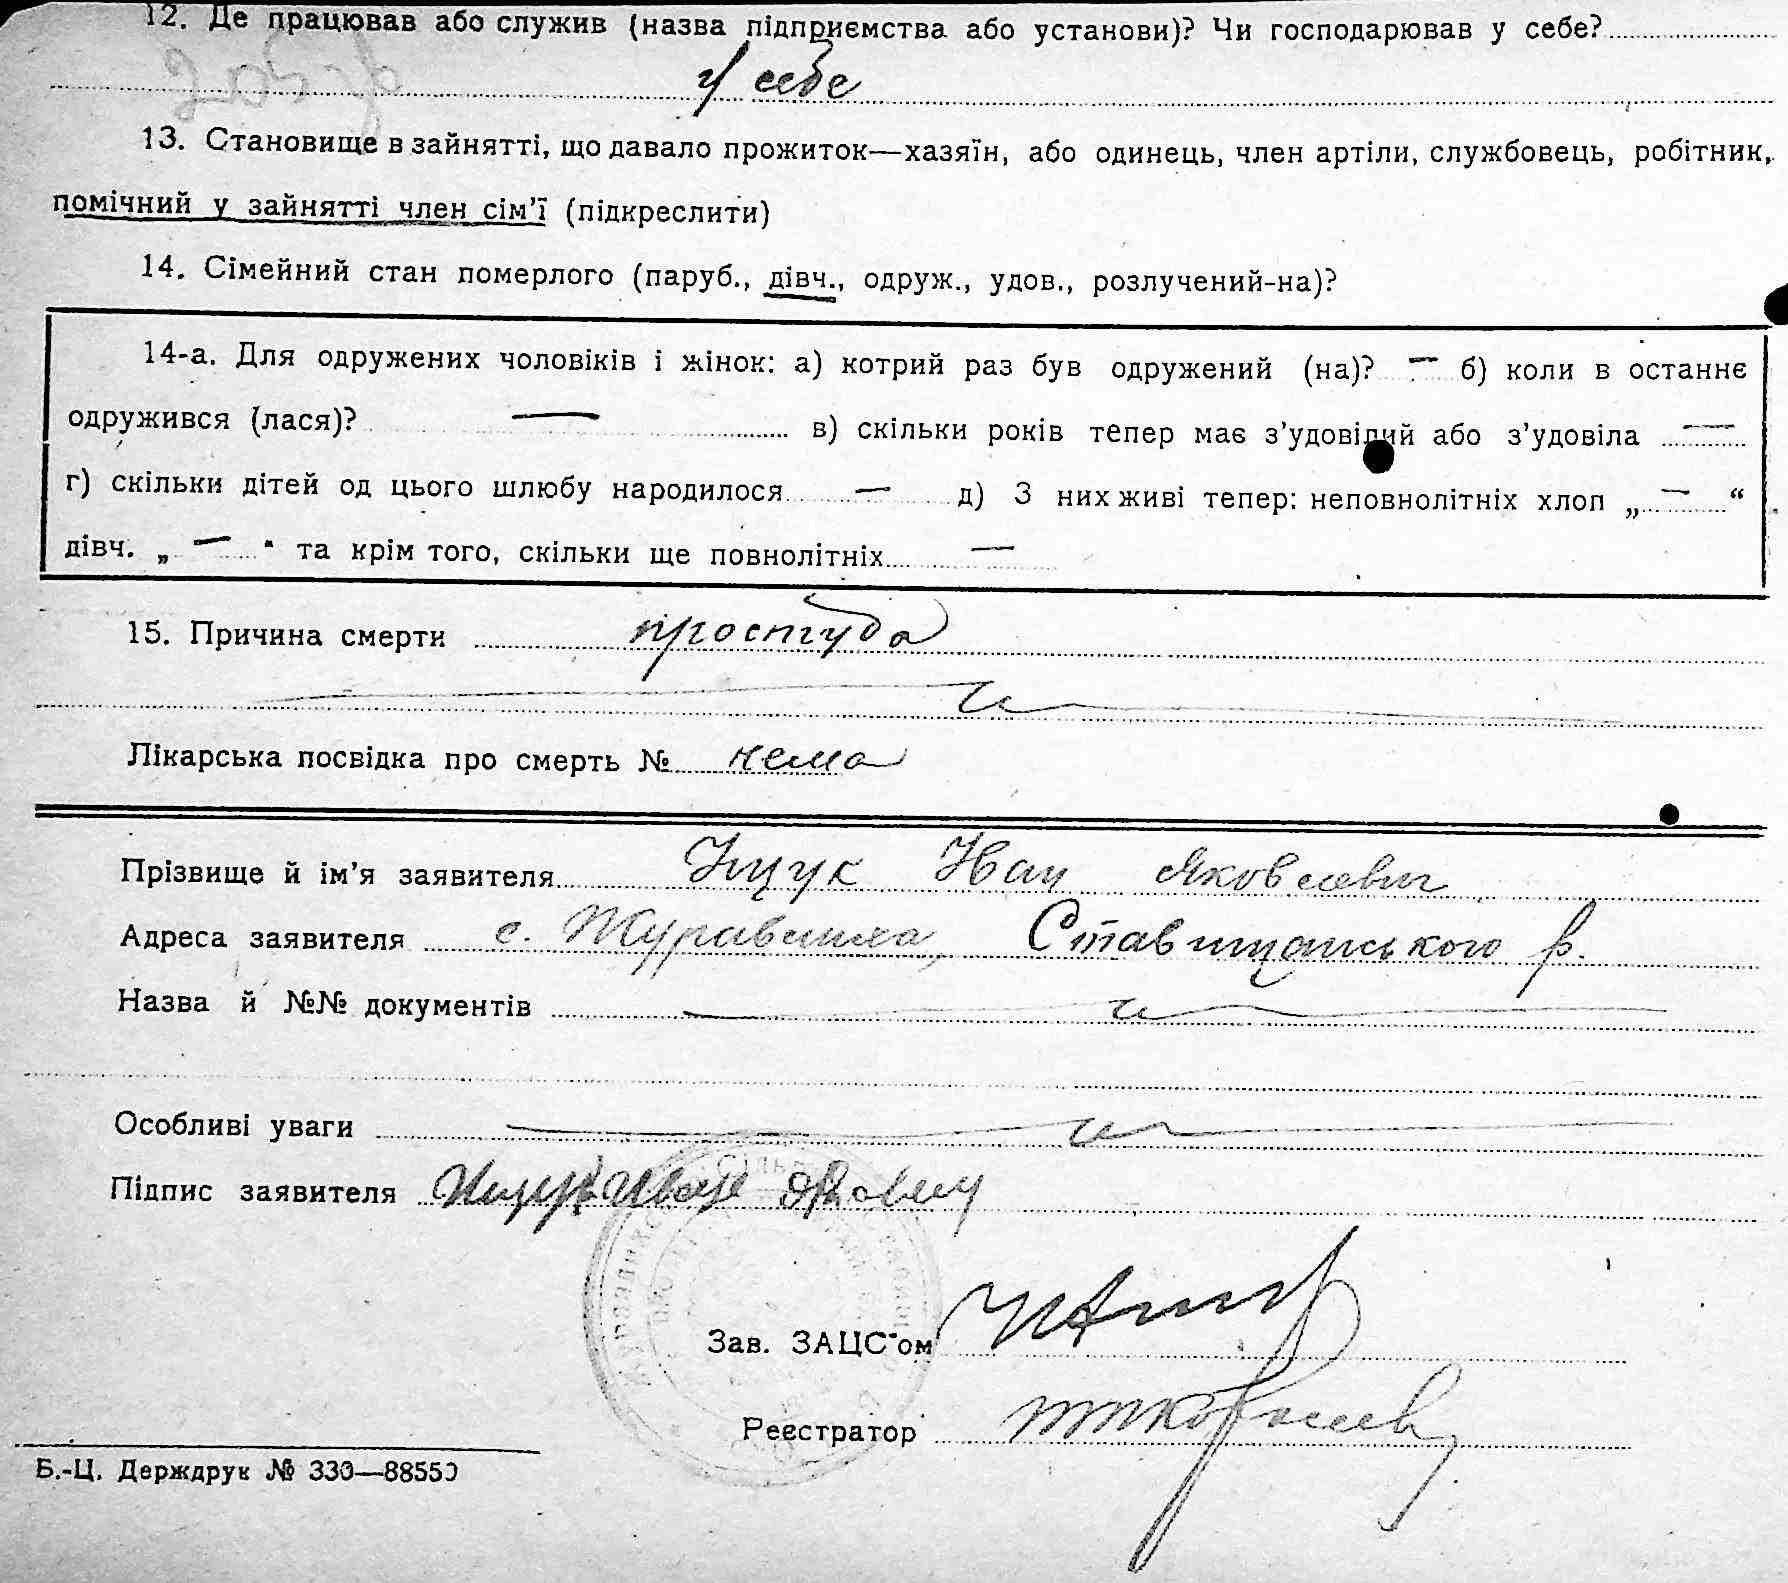 12. Де працював або служив (назва підприємства або установи)? Чи господарював у себе?
у себе
13. Становище в зайнятті, що давало прожиток—хазяїн, або одинець, член артіли, службовець, робітник,
помічний у зайнятті член сім'ї (підкреслити)
14. Сімейний стан померлого (паруб., дівч., одруж., удов., розлучений-на)?
14-а. Для одружених чоловіків і жінок: а) котрий раз був одружений (на)? — б) коли в останнє
одружився (лася)? — в) скільки років тепер має з'удовілий або з'удовіла —
г) скільки дітей од цього шлюбу народилося — д) З них живі тепер: неповнолітніх хлоп „ — “
дівч. „ — " та крім того, скільки ще повнолітніх —
15. Причина смерти простуда
Лікарська посвідка про смерть № нема
Прізвище й ім'я заявителя Іщук Иван Яковлевич
Адреса заявителя с. Журавлиха, Ставищанського р.
Назва й №№ документів
Особливі уваги
Підпис заявителя Ищук Иван
Зав. ЗАЦС'ом
Реєстратор
Б.-Ц. Держдрук № 330—88550